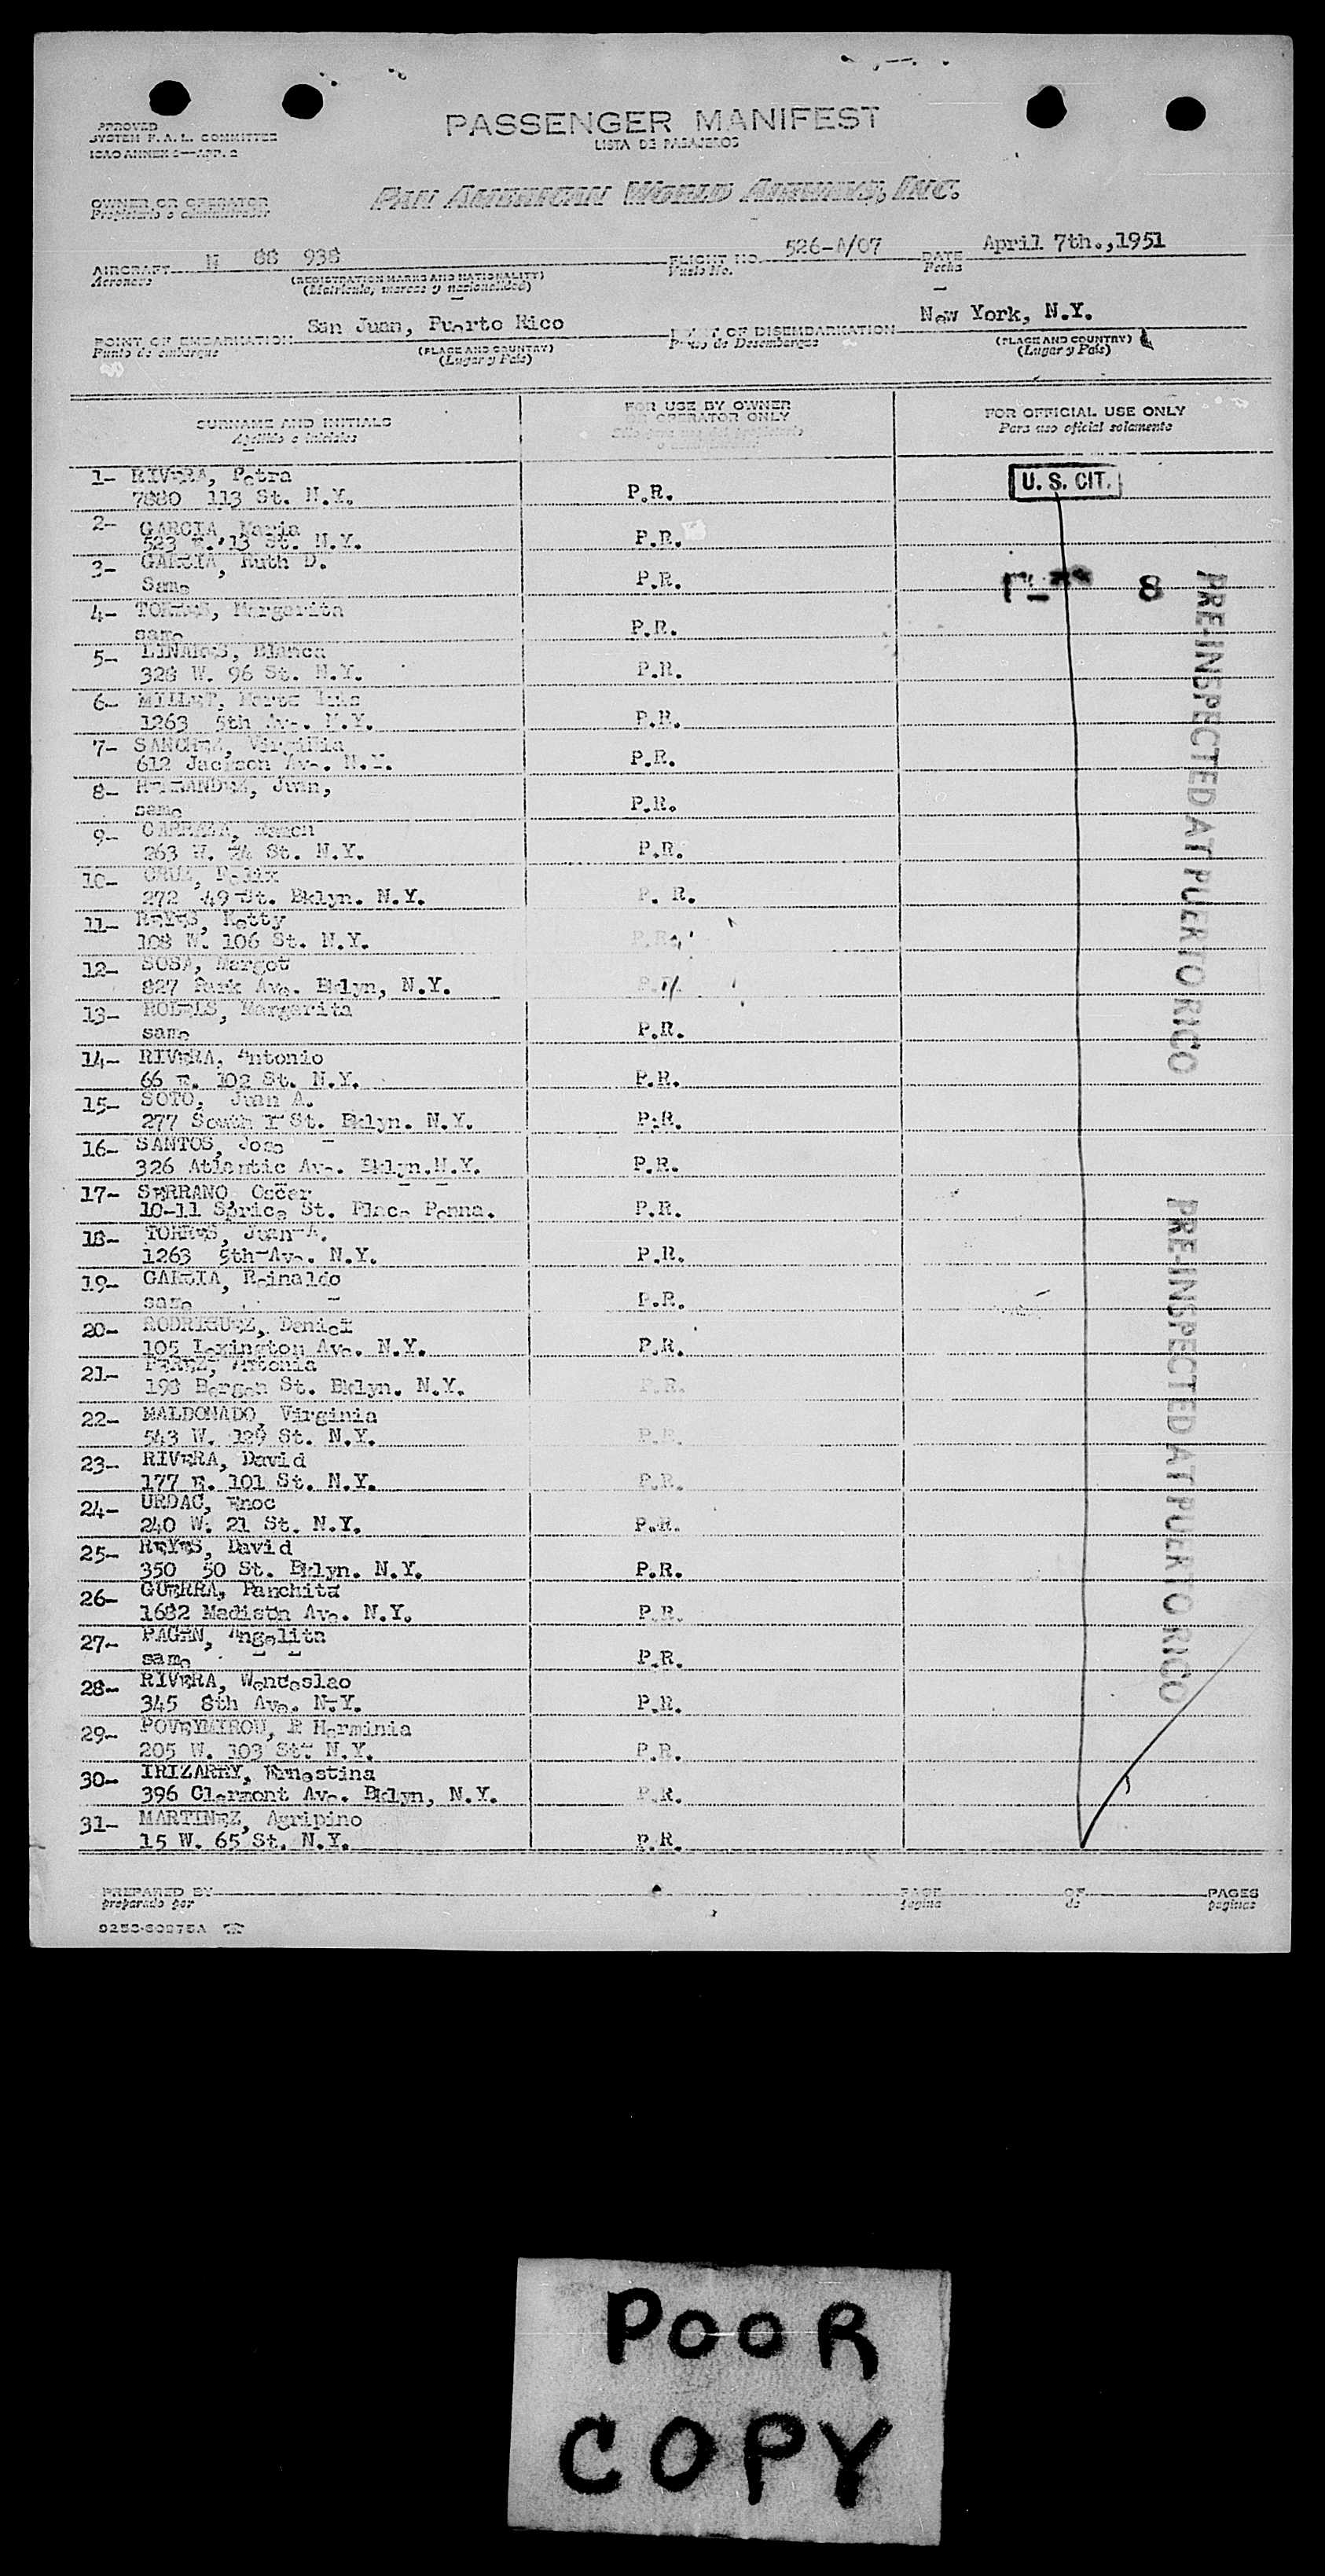 PASSENGER MANIFEST
LISTA DE PASAJEROS
APPROVED
SYSTEM F.A.L. COMMITTEE
ICAO ANNEX 9—APP. 2
PAN AMERICAN WORLD AIRWAYS, INC.
OWNER OR OPERATOR
Propietario o administrador
AIRCRAFT N 88 938 FLIGHT NO. 526-A/07 DATE April 7th.,1951
Aeronave (REGISTRATION MARKS AND NATIONALITY) Vuelo No. Fecha
(Matricula, marcas y nacionalidad)
POINT OF EMBARKATION San Juan, Puerto Rico POINT OF DISEMBARKATION New York, N.Y.
Punto de embarque (PLACE AND COUNTRY) Punto de Desembarque (PLACE AND COUNTRY)
(Lugar y País) (Lugar y País)
SURNAME AND INITIALS FOR USE BY OWNER OR OPERATOR ONLY FOR OFFICIAL USE ONLY
Apellido e iniciales Para uso oficial solamente
1- RIVERA, Petra
7880 113 St. N.Y. P.R. U. S. CIT.
2- GARCIA, Maria
523 E. 13 St. N.Y. P.R.
3- GARCIA, Ruth D.
Same P.R. 8
4- TORRES, Margarita
same P.R.
5- LINARES, Blanca
328 W. 96 St. N.Y. P.R.
6- MILLET,
1263 5th Ave. N.Y. P.R.
7- SANCHEZ, Virginia
612 Jackson Ave. N.Y. P.R.
8- HERNANDEZ, Juan,
same P.R.
9- Ramon
263 W. 24 St. N.Y. P.R.
10- CRUZ, Felix
272 49 St. Bklyn. N.Y. P. R.
11- REYES, Ketty
108 W. 106 St. N.Y. P.R.
12- SOSA, Margot
827 Park Ave. Bklyn, N.Y. P.R.
13- ROBLES, Margarita
same P.R.
14- RIVERA, Antonio
66 E. 102 St. N.Y. P.R.
15- SOTO, Juan A.
277 South 1 St. Bklyn. N.Y. P.R.
16- SANTOS, Jose
326 Atlantic Ave. Bklyn.N.Y. P.R.
17- SERRANO, Oscar
10-11 Sprice St. Place Penna. P.R.
18- TORRES, Juan A.
1263 5th Ave. N.Y. P.R.
19- GARCIA, Reinaldo
same P.R.
20- RODRIGUEZ, Daniel
105 Lexington Ave. N.Y. P.R.
21- PEREZ, Antonia
198 Bergen St. Bklyn. N.Y. P.R.
22- MALDONADO, Virginia
543 W. 129 St. N.Y. P.R.
23- RIVERA, David
177 E. 101 St. N.Y. P.R.
24- URDAC, Enoc
240 W. 21 St. N.Y. P.R.
25- REYES, David
350 50 St. Bklyn. N.Y. P.R.
26- GUERRA, Panchita
1682 Madison Ave. N.Y. P.R.
27- PAGEN, Angelita
same P.R.
28- RIVERA, Wenceslao
345 8th Ave. N.Y. P.R.
29- POVEYMIROU, R Herminia
205 W. 103 St. N.Y. P.R.
30- IRIZARRY, Ernestina
396 Clermont Ave. Bklyn, N.Y. P.R.
31- MARTINEZ, Agripino
15 W. 65 St. N.Y. P.R.
PRE-INSPECTED AT PUERTO RICO
PRE-INSPECTED AT PUERTO RICO
PREPARED BY PAGE OF PAGES
preparado por pagina de paginas
POOR
COPY